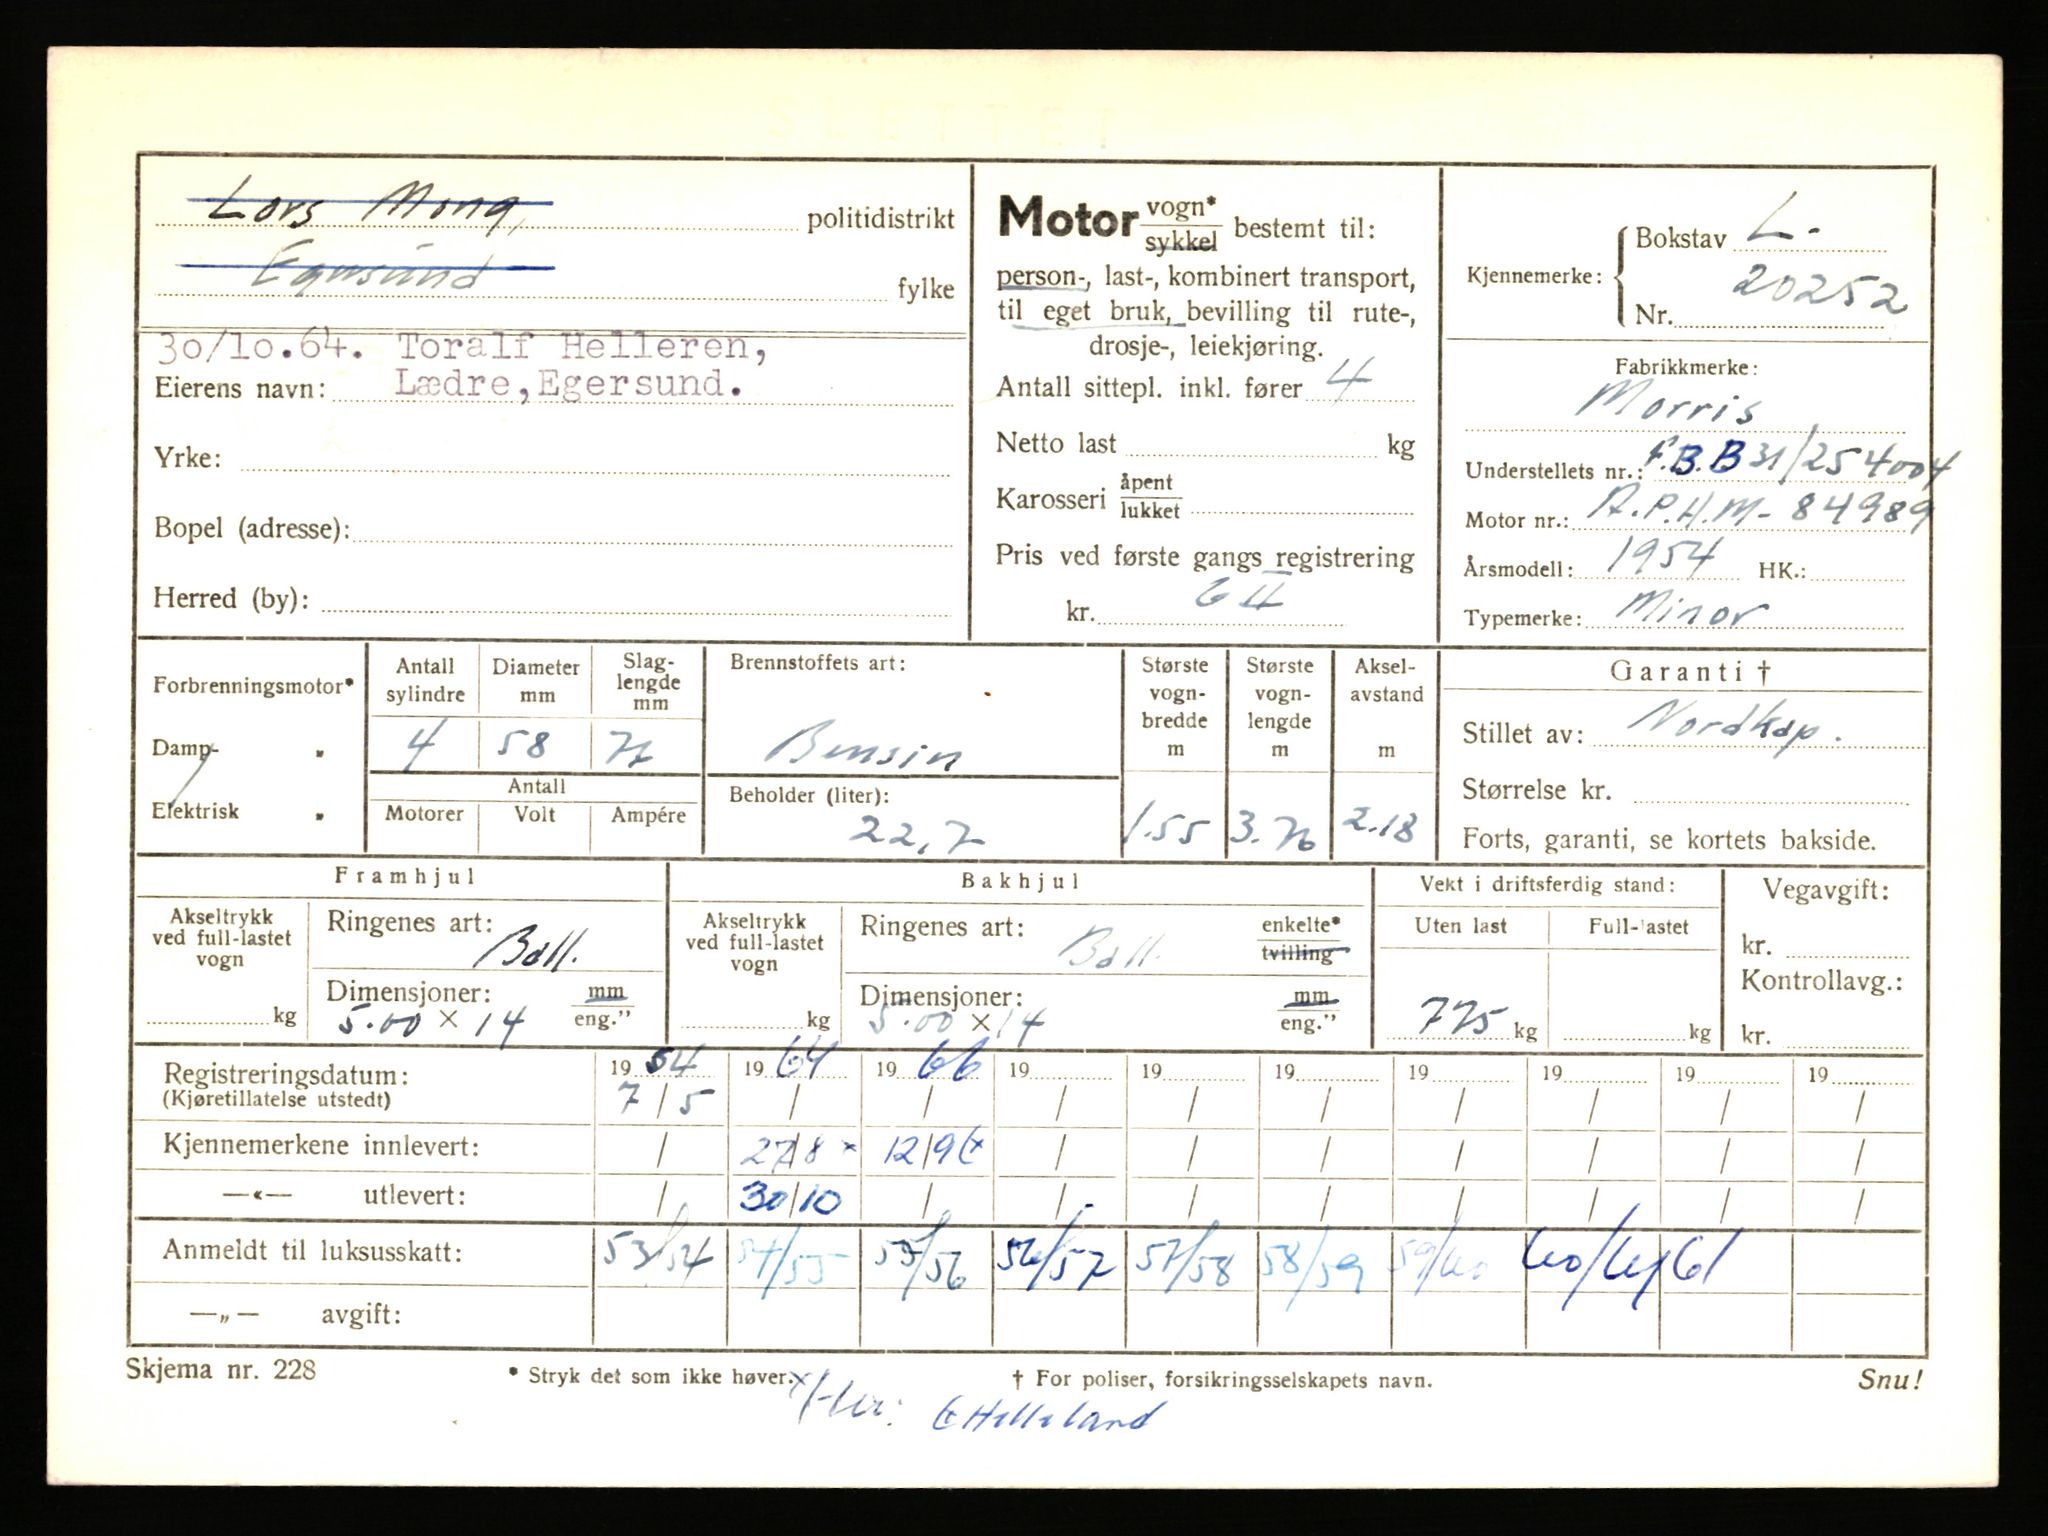 SLETTET
Lars Mong, politidistrikt
Egersund fylke
30/10.64. Toralf Helleren,
Eierens navn: Lædre, Egersund.
Yrke:
Bopel (adresse):
Herred (by):
Motor vogn* sykkel bestemt til:
person-, last-, kombinert transport,
til eget bruk, bevilling til rute-,
drosje-, leiekjøring.
Antall sittepl. inkl. fører 4
Netto last kg
Karosseri åpent lukket
Pris ved første gangs registrering
kr. G II
Kjennemerke: Bokstav L-
Nr. 20252
Fabrikkmerke:
Morris
Understellets nr.: F.B.B 31/254004
Motor nr.: A.P.H.M- 84989
Årsmodell: 1954 HK.:
Typemerke: Minor
Forbrenningsmotor*
Damp- "
Elektrisk "
Antall sylindre
4
Diameter mm
58
Slag-lengde mm
76
Antall
Motorer Volt Ampére
Brennstoffets art:
Bensin
Beholder (liter):
22,7
Største vogn-bredde m
1.55
Største vogn-lengde m
3.76
Aksel-avstand m
2.18
Garanti †
Stillet av: Nordkap.
Størrelse kr.
Forts, garanti, se kortets bakside.
Framhjul
Akseltrykk ved full-lastet vogn
kg
Ringenes art:
Ball.
Dimensjoner: mm eng."
5.00 × 14
Bakhjul
Akseltrykk ved full-lastet vogn
kg
Ringenes art: enkelte* tvilling
Ball.
Dimensjoner: mm eng."
5.00 × 14
Vekt i driftsferdig stand:
Uten last Full-lastet
775 kg kg
Vegavgift:
kr.
Kontrollavg.:
kr.
Registreringsdatum: 19 54 19 64 19 66 19 19 19 19 19 19 19
(Kjøretillatelse utstedt) 7/5 / / / / / / / / /
Kjennemerkene innlevert: / 27/8 × 12/9 / / / / / / /
—«— utlevert: / 30/10 / / / / / / / /
Anmeldt til luksusskatt: 53/54 54/55 55/56 56/57 57/58 58/59 59/60 60/61 61
—„— avgift:
Skjema nr. 228 * Stryk det som ikke høver. † For poliser, forsikringsselskapets navn. Snu!
Helleland